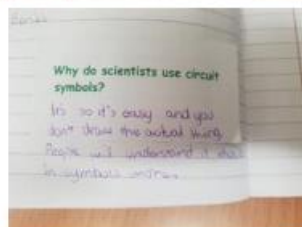 Why do scientists use circuit
symbols?
so it's easy and you
don't draw the actual thing.
People will understand it
in symbols